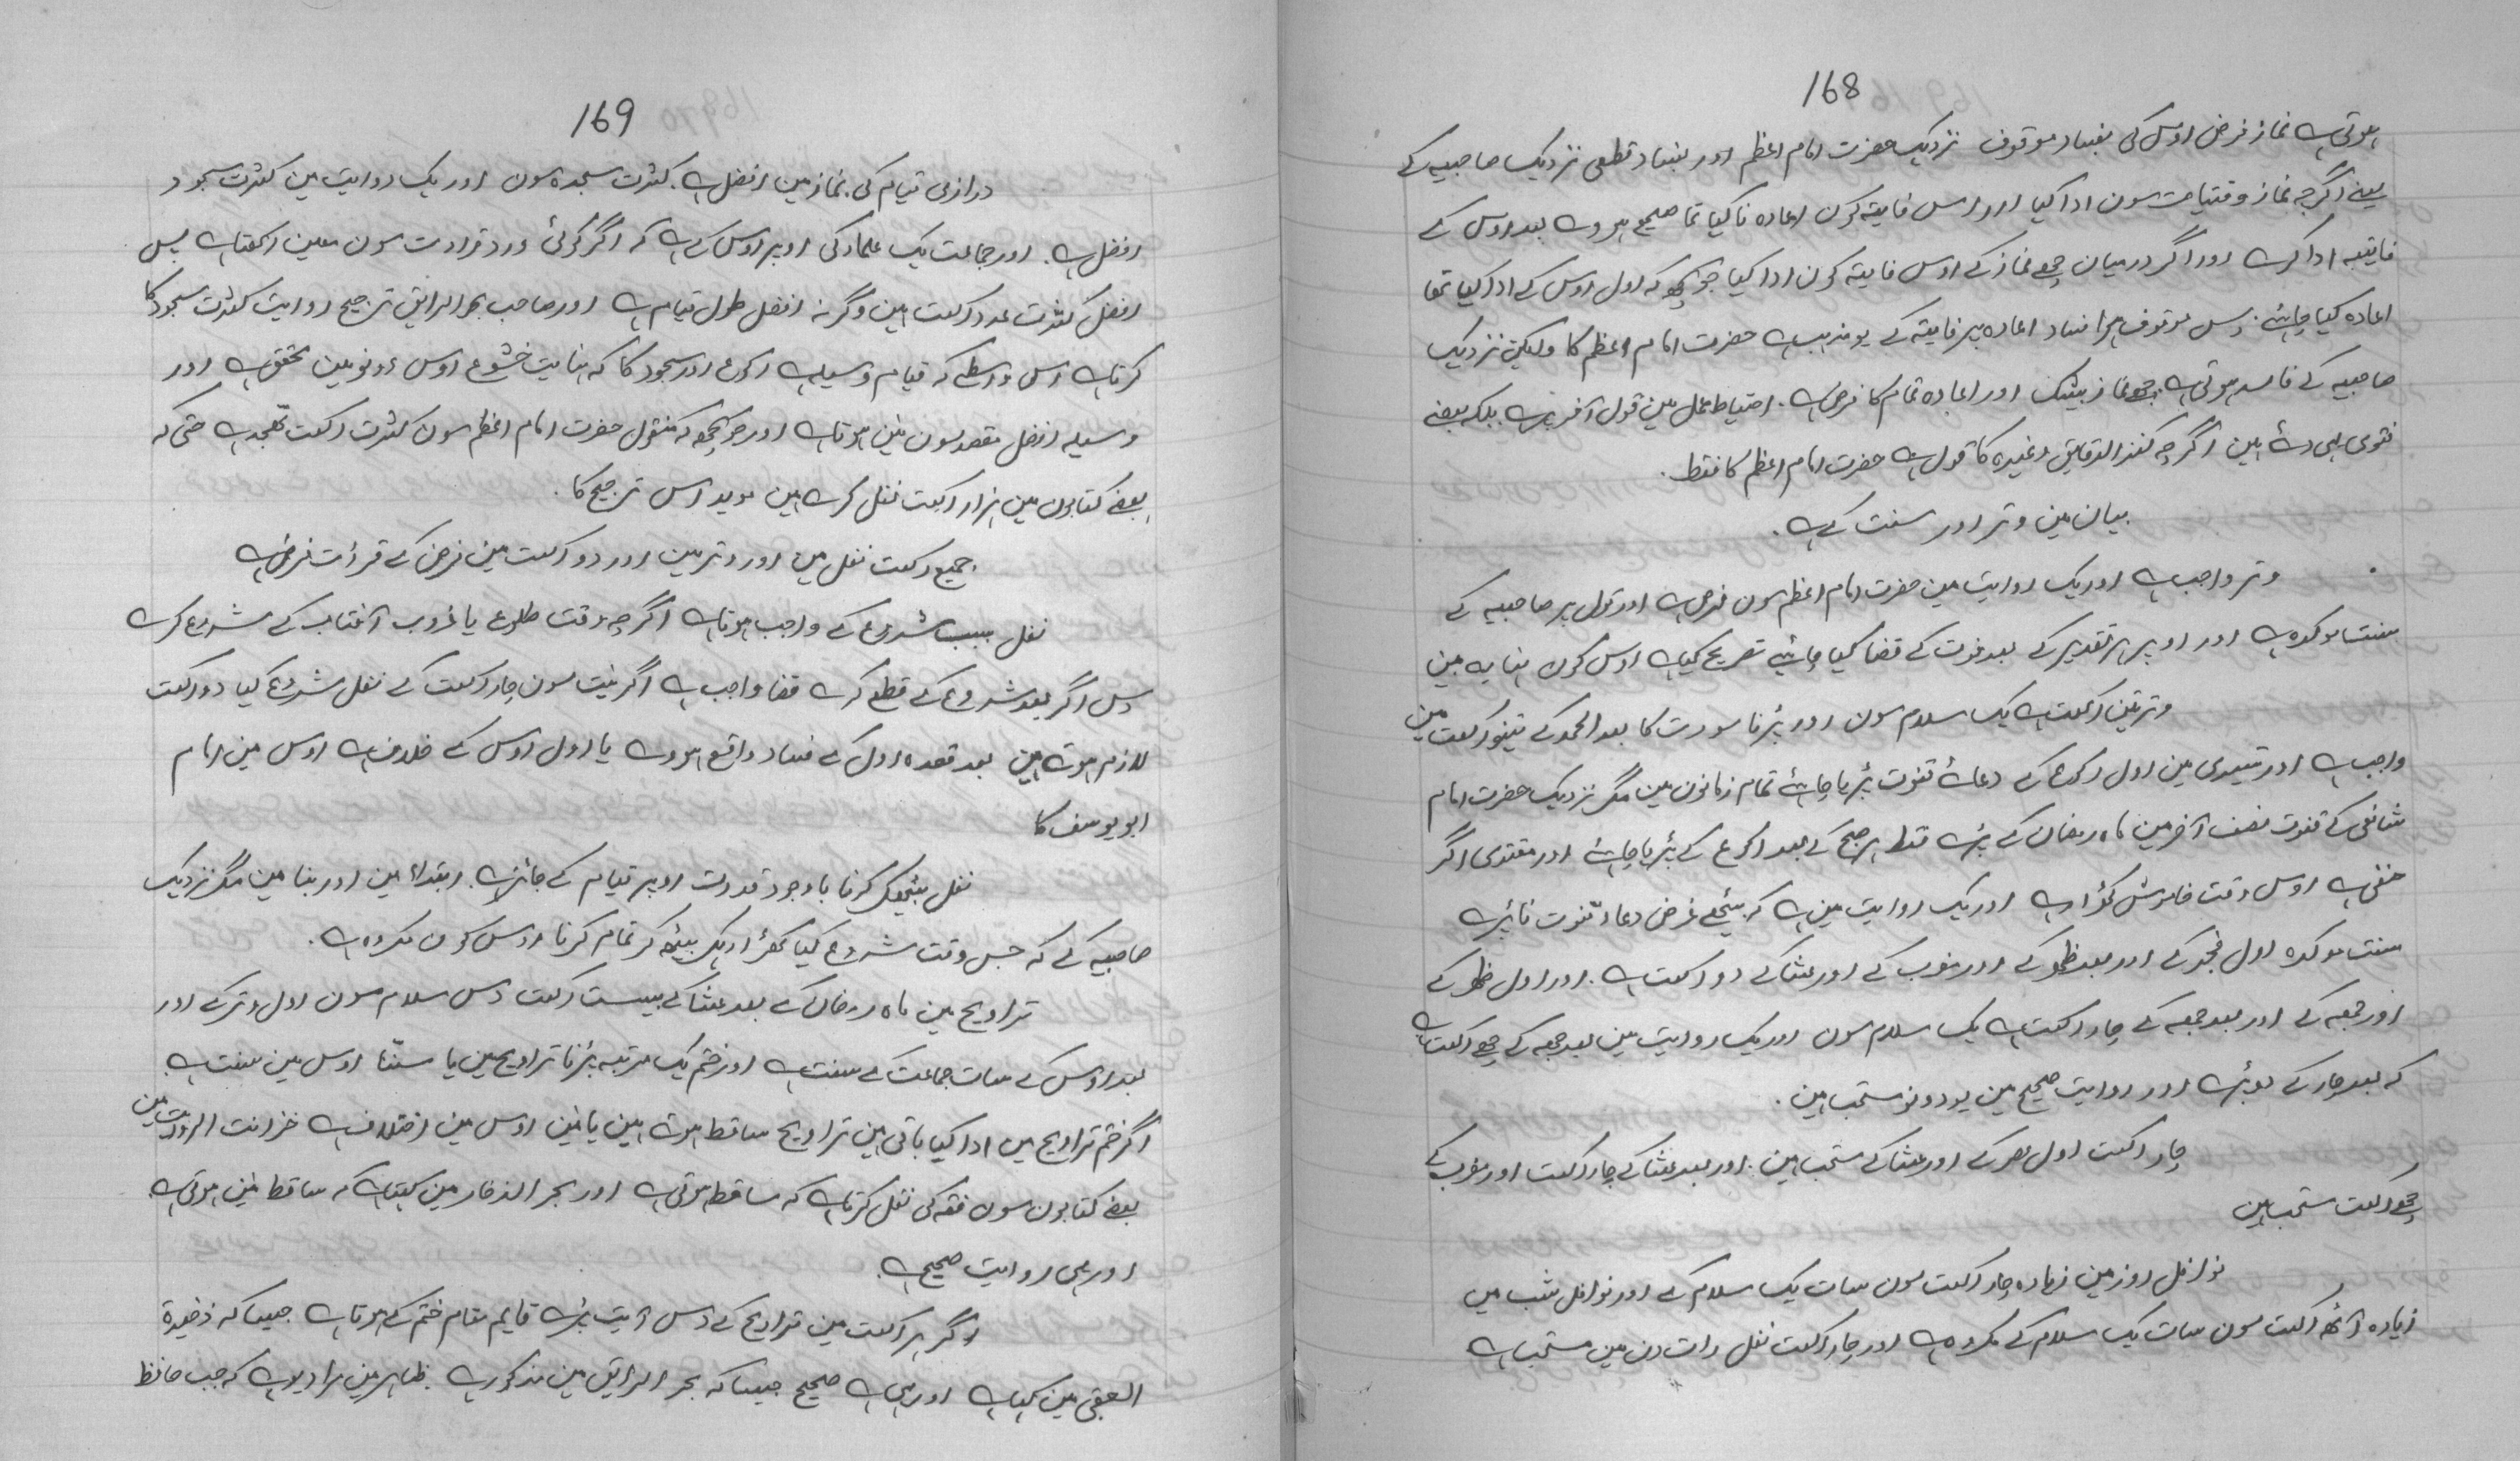 168
ہوتی ہے نماز فرض اوس کی بفساد موقوف نزدیک حضرت امام اعظم اور بفساد قطعی نزدیک صاحبیہ کے
یعنے اگرچہ نماز وقتیات سون ادا کیا اور اس فایتہ کون اعادہ نا کیا تا صحیح ہووے بعد اوس کے
فایتہ ادا کرے اور اگر درمیان چھے نماز کے اوس فایتہ کون ادا کیا جو کچھ کہ اول اوس کے ادا کیا تھا
اعادہ کیا چاہئے. پس موقوف ہوا فساد اعادہ پر فایتہ کے یو مذہب ہے حضرت امام اعظم کا ولیکن نزدیک
صاحبیہ کے فاسد ہوتی ہے چھے نماز بیشک اور اعادہ تمام کا فرض ہے. احتیاط عمل مین قول آخر پر ہے بلکہ بعضے
فتوی بہی دئے ہین اگرچہ کنز الدقایق وغیرہ کا قول ہے حضرت امام اعظم کا فقط.
بیان مین وتر اور سنت کے ہے.
وتر واجب ہے اور یک روایت مین حضرت امام اعظم سون فرض ہے اور قول پر صاحبیہ کے
سنت موکدہ ہے اور اوپر ہر تقدیر کے بعد فوت کے قضا کیا چاہئے تصریح کیا ہے اوس کون ہنایہ مین
وتر تین رکعت ہے یک سلام سون اور پڑنا سورت کا بعد الحمد کے تینو رکعت مین
واجب ہے اور تیسری مین اول رکوع کے دعائے قنوت پڑیا چاہئے تمام زمانون مین مگر نزدیک حضرت امام
شافعی کے قنوت نصف آخر مین ماہ رمضان کے پڑے فقط ہر صبح کے بعد رکوع کے پڑیا چاہئے اور مقتدی اگر
حنفی ہے اوس وقت خاموش کھڑا رہے اور یک روایت مین ہے کہ بیٹھے غرض دعاء قنوت نا پڑے
سنت موکدہ اول فجر کے اور بعد ظہر کے اور مغرب کے اور عشا کے دو رکعت ہے. اور اول ظہر کے
اور جمعہ کے اور بعد جمعہ کے چار رکعت ہے یک سلام سون اور یک روایت مین بعد جمعہ کے چھے رکعت ہے
کہ بعد چار کے یو پڑے اور روایت صحیح مین یو دونو مستحب ہین.
چار رکعت اول عصر کے اور عشا کے مستحب ہین. اور بعد عشا کے چار رکعت اور مغرب کے
چھے رکعت مستحب ہین
نوافل روز مین زیادہ چار رکعت سون سات یک سلام کے اور نوافل شب مین
زیادہ آٹھ رکعت سون سات یک سلام کے مکروہ ہے اور چار رکعت نفل رات دن مین مستحب ہے
169
درازی قیام کی نماز مین افضل ہے کثرت سجدہ سون اور یک روایت مین کثرت سجود
افضل ہے. اور جماعت یک علماء کی اوپر اوس کے ہے کہ اگر کوئی ورد قراءت سون معین رکھتا ہے پس
افضل کثرت عدد رکعت ہین وگرنہ افضل طول قیام ہے اور صاحب بحر الرایق ترجیح روایت کثرت سجود کا
کرتا ہے اس واسطے کہ قیام وسیلہ ہے رکوع اور سجود کا کہ نہایت خشوع اوس دونو مین تحقق ہے اور
وسیلہ افضل مقصد سون نئین ہوتا ہے اور جو کچھ کہ منقول حضرت امام اعظم سون کثرت رکعت تہجد ہے حتی کہ
بعضے کتابون مین ہزار رکعت نقل کرے ہین موید اس ترجیح کا.
جمیع رکعت نفل مین اور وتر مین اور دو رکعت مین فرض کے قرأت فرض ہے
نفل بسبب شروع کے واجب ہوتا ہے اگرچہ وقت طلوع یا غروب آفتاب کے شروع کرے
پس اگر بعد شروع کے قطع کرے قضا واجب ہے اگر نیت سون چار رکعت کے نفل شروع کیا دو رکعت
لازم ہوتے ہین بعد قعدہ اول کے فساد واقع ہووے یا اول اوس کے خلاف ہے اوس مین امام
ابو یوسف کا
نفل بیٹھکر کرنا باوجود قدرت اوپر قیام کے جائز ہے. ابتدا مین اور بنا مین مگر نزدیک
صاحبیہ کے کہ جس وقت شروع کیا کھڑا رہکر بیٹھ کر تمام کرنا اوس کون مکروہ ہے.
تراویح مین ماہ رمضان کے بعد عشا کے بیست رکعت دس سلام سون اول وتر کے اور
بعد اوس کے سات جماعت کے سنت ہے اور ختم یک مرتبہ پڑنا تراویح مین یا سننا اوس مین سنت ہے
اگر ختم تراویح مین ادا کیا باقی مین تراویح ساقط ہوتے ہین یا نئین اوس مین اختلاف ہے خزانت الروایت مین
بعضے کتابون سون فقہ کی نقل کرتا ہے کہ ساقط ہوتی ہے اور بحر الذخار مین کہتا ہے کہ ساقط نئین ہوتی ہے
اور یہی روایت صحیح ہے.
اگر ہر رکعت مین تراویح کے دس آیت پڑے قایم مقام ختم کے ہوتا ہے جیسا کہ ذخیرة
العقبی مین کہا ہے اور یہی ہے صحیح جیسا کہ بحر الرایق مین مذکور ہے. ظاہر مین مراد یو ہے کہ جب حافظ